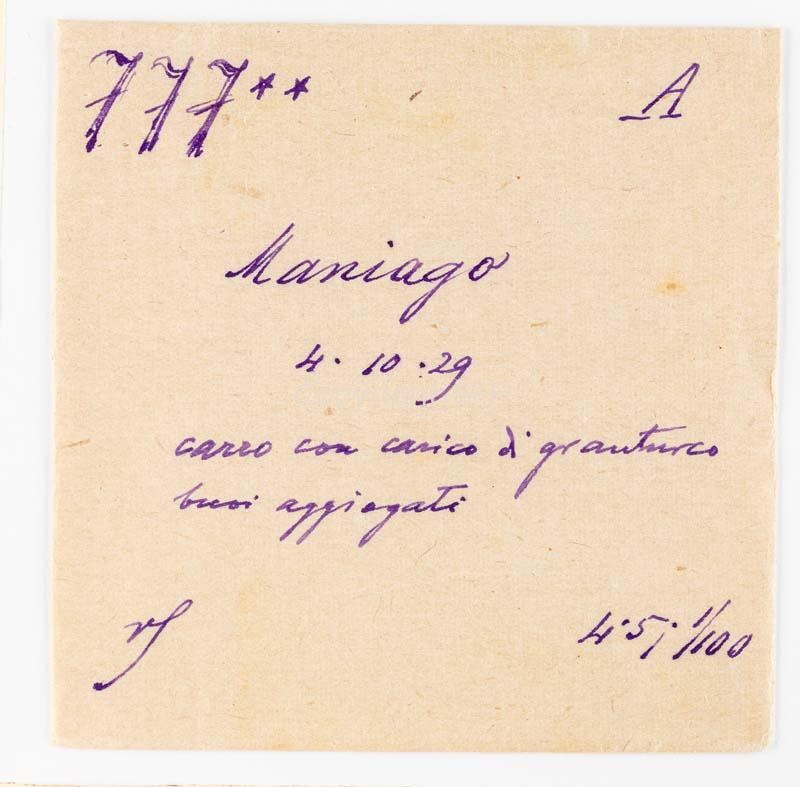 777**
A
Maniago
4.10.29
carro con carico di granturco
buoi aggiogati
4.5; 1/100